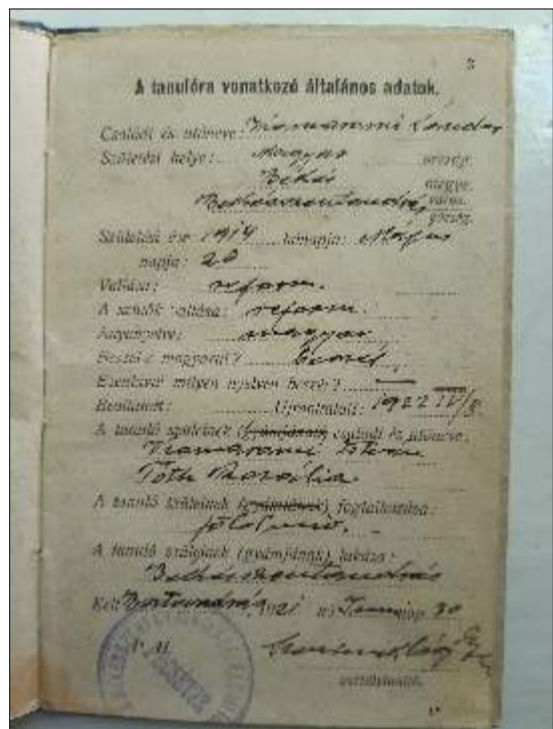 3
A tanulóra vonatkozó általános adatok.
Családi és utóneve:
Születési helye: Magyar ország.
Békés megye.
Békésszentandrás város. község.
Születési éve 1914 hónapja: Május
napja: 20
Vallása: reform.
A szülők vallása: reform.
Anyanyelve: magyar
Beszél-e magyarul?
Ezenkívül milyen nyelven beszél? —
Beoltatott: Ujraoltatott: 1922 IV/8.
A tanuló szüleinek (gyámjának) családi és utóneve:
István
Tóth Rozália
A tanuló szüleinek (gyámjának) foglalkozása:
A tanuló szüleinek (gyámjának) lakása:
Békésszentandrás
Kelt 1921 évi hó 30
P. H.
osztálytanító.
1*